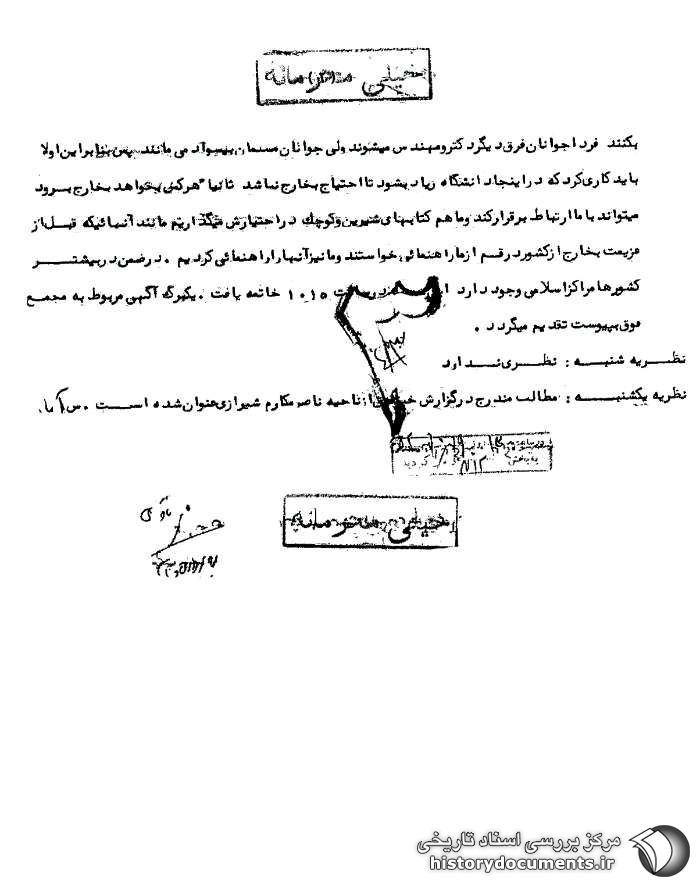 خیلی محرمانه
بکنند فردا جوانان فرق دیگر دکتر و مهندس میشوند ولی جوانان مسلمان بیسواد می مانند پس بنابراین اولا
باید کاری کرد که در اینجا دانشگاه زیاد بشود تا احتیاج بخارج نباشد ثانیا هرکس بخواهد بخارج برود
میتواند با ما ارتباط برقرار کند و ما هم کتابهای شیرین و کوچک در اختیارش میگذاریم مانند آنهائیکه قبل از
عزیمت بخارج از کشور در قم از ما راهنمائی خواستند و ما نیز آنها را راهنمائی کردیم . در ضمن در بیشتر
کشورها مراکز اسلامی وجود دارد ساعت ۱۰۱۵ خاتمه یافت . یکبرگ آگهی مربوط به مجمع
فوق بپیوست تقدیم میگردد .
نظریه شنبه : نظری ندارد
نظریه یکشنبه : مطالب مندرج در گزارش خبر از ناحیه ناصر مکارم شیرازی عنوان شده است .
خیلی محرمانه
مرکز بررسی اسناد تاریخی
historydocuments.ir